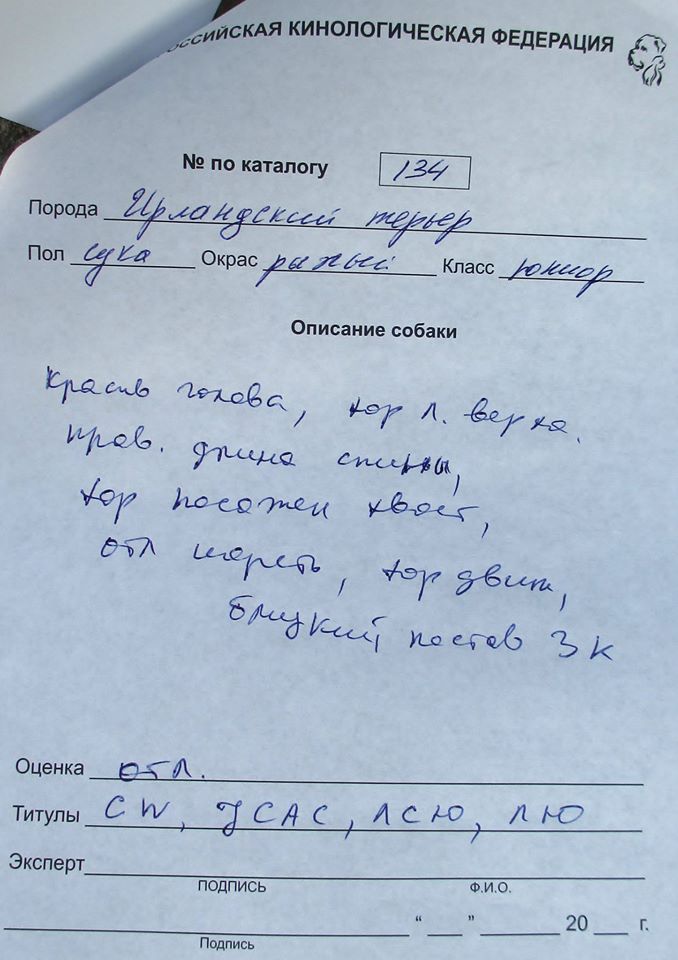 РОССИЙСКАЯ КИНОЛОГИЧЕСКАЯ ФЕДЕРАЦИЯ
№ по каталогу 134
Порода Ирландский терьер
Пол сука Окрас рыжый Класс юниор
Описание собаки
красив голова, хор л. верха.
прав. длина спины,
хор посажен хвост,
отл шерсть, хор движ,
близкий постав З К
Оценка отл.
Титулы CW, JCAC, ЛСЮ, ЛЮ
Эксперт
ПОДПИСЬ Ф.И.О.
“ ” 20 г.
Подпись